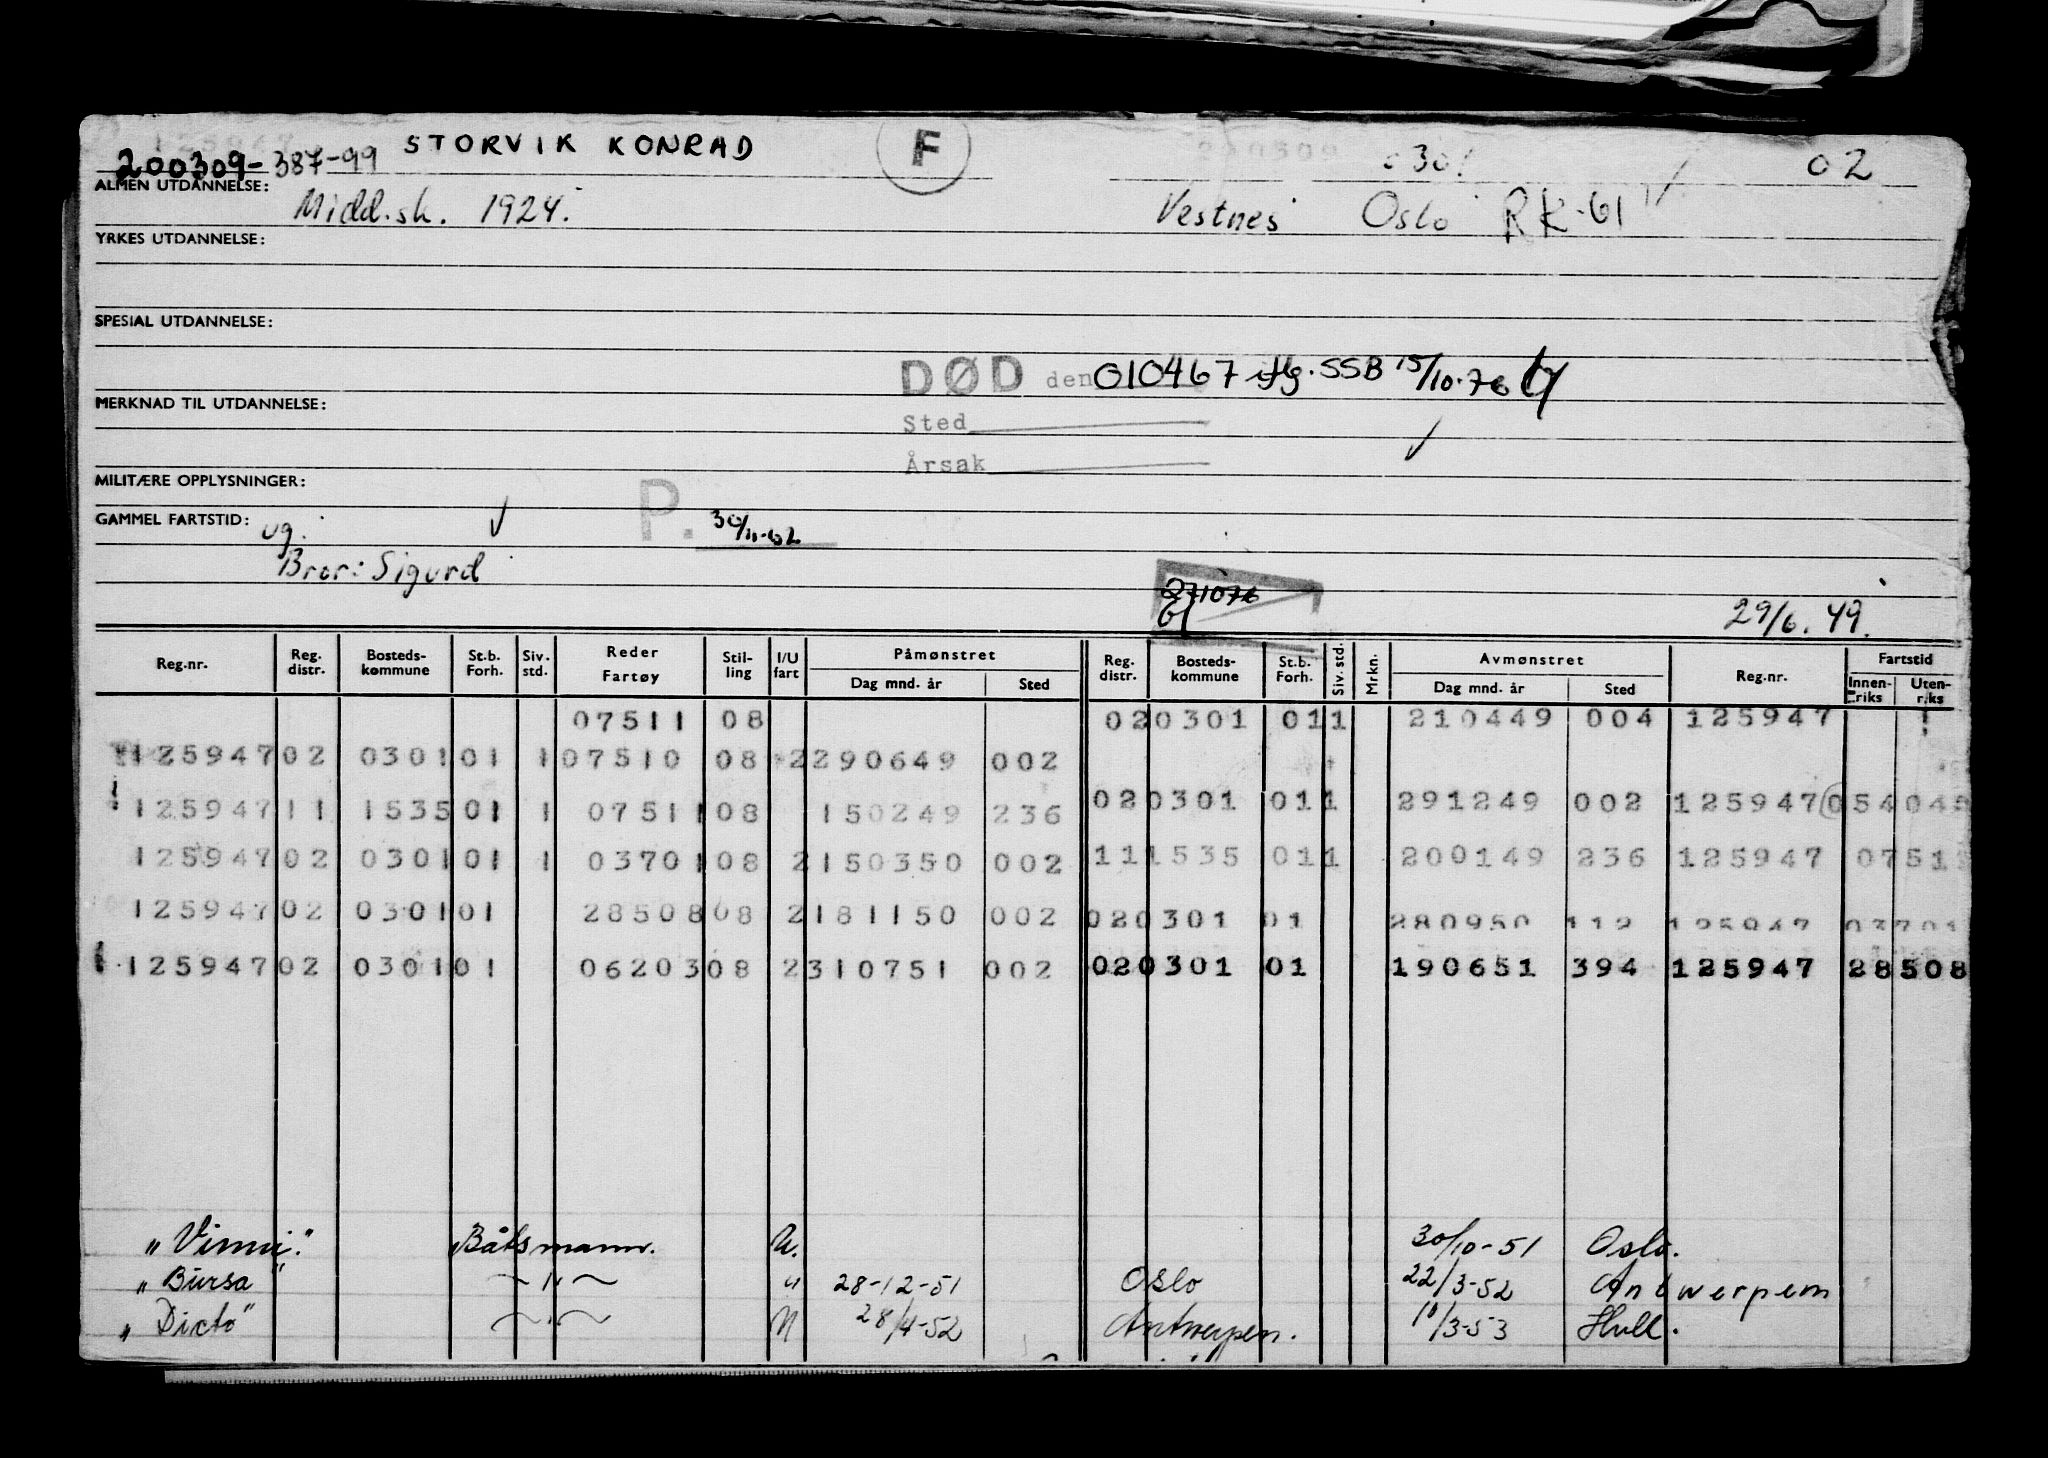 200309-387-99 STORVIK KONRAD F 0301 02
ALMEN UTDANNELSE: Midd.sk. 1924. Vestnes Oslo RK-61
YRKES UTDANNELSE:
SPESIAL UTDANNELSE:
DØD den 010467 iflg. SSB 15/10-76
MERKNAD TIL UTDANNELSE:
Sted
Årsak
MILITÆRE OPPLYSNINGER:
GAMMEL FARTSTID: ug. P. 30/11-62
Bror: Sigurd
271076
29/6. 49.
Reg.nr. Reg. distr. Bosteds-kommune St.b. Forh. Siv. std. Reder Fartøy Stil-ling I/U fart Påmønstret Dag mnd. år Sted Reg. distr. Bosteds-kommune St.b. Forh. Siv. std. Mrkn. Avmønstret Dag mnd. år Sted Reg.nr. Fartstid Innen-riks Uten-riks
07511 08 02 0301 01 1 210449 004 125947
125947 02 0301 01 1 07510 08 2 290649 002
125947 11 1535 01 1 07511 08 150249 236 02 0301 01 1 291249 002 125947 054 04
125947 02 0301 01 1 03701 08 2 150350 002 11 1535 01 1 200149 236 125947 0751
125947 02 0301 01 28508 08 2 181150 002 02 0301 01 280950 112 125947 03701
125947 02 0301 01 06203 08 2 310751 002 02 0301 01 190651 394 125947 28508
"Vinni." Båtsmann. U. 30/10-51 Oslo.
"Bursa" — " — " 28-12-51 Oslo 22/3-52 Antwerpem
"Dicto" — " — U 28/4-52 Antwerpen. 11/3-53 Hull.